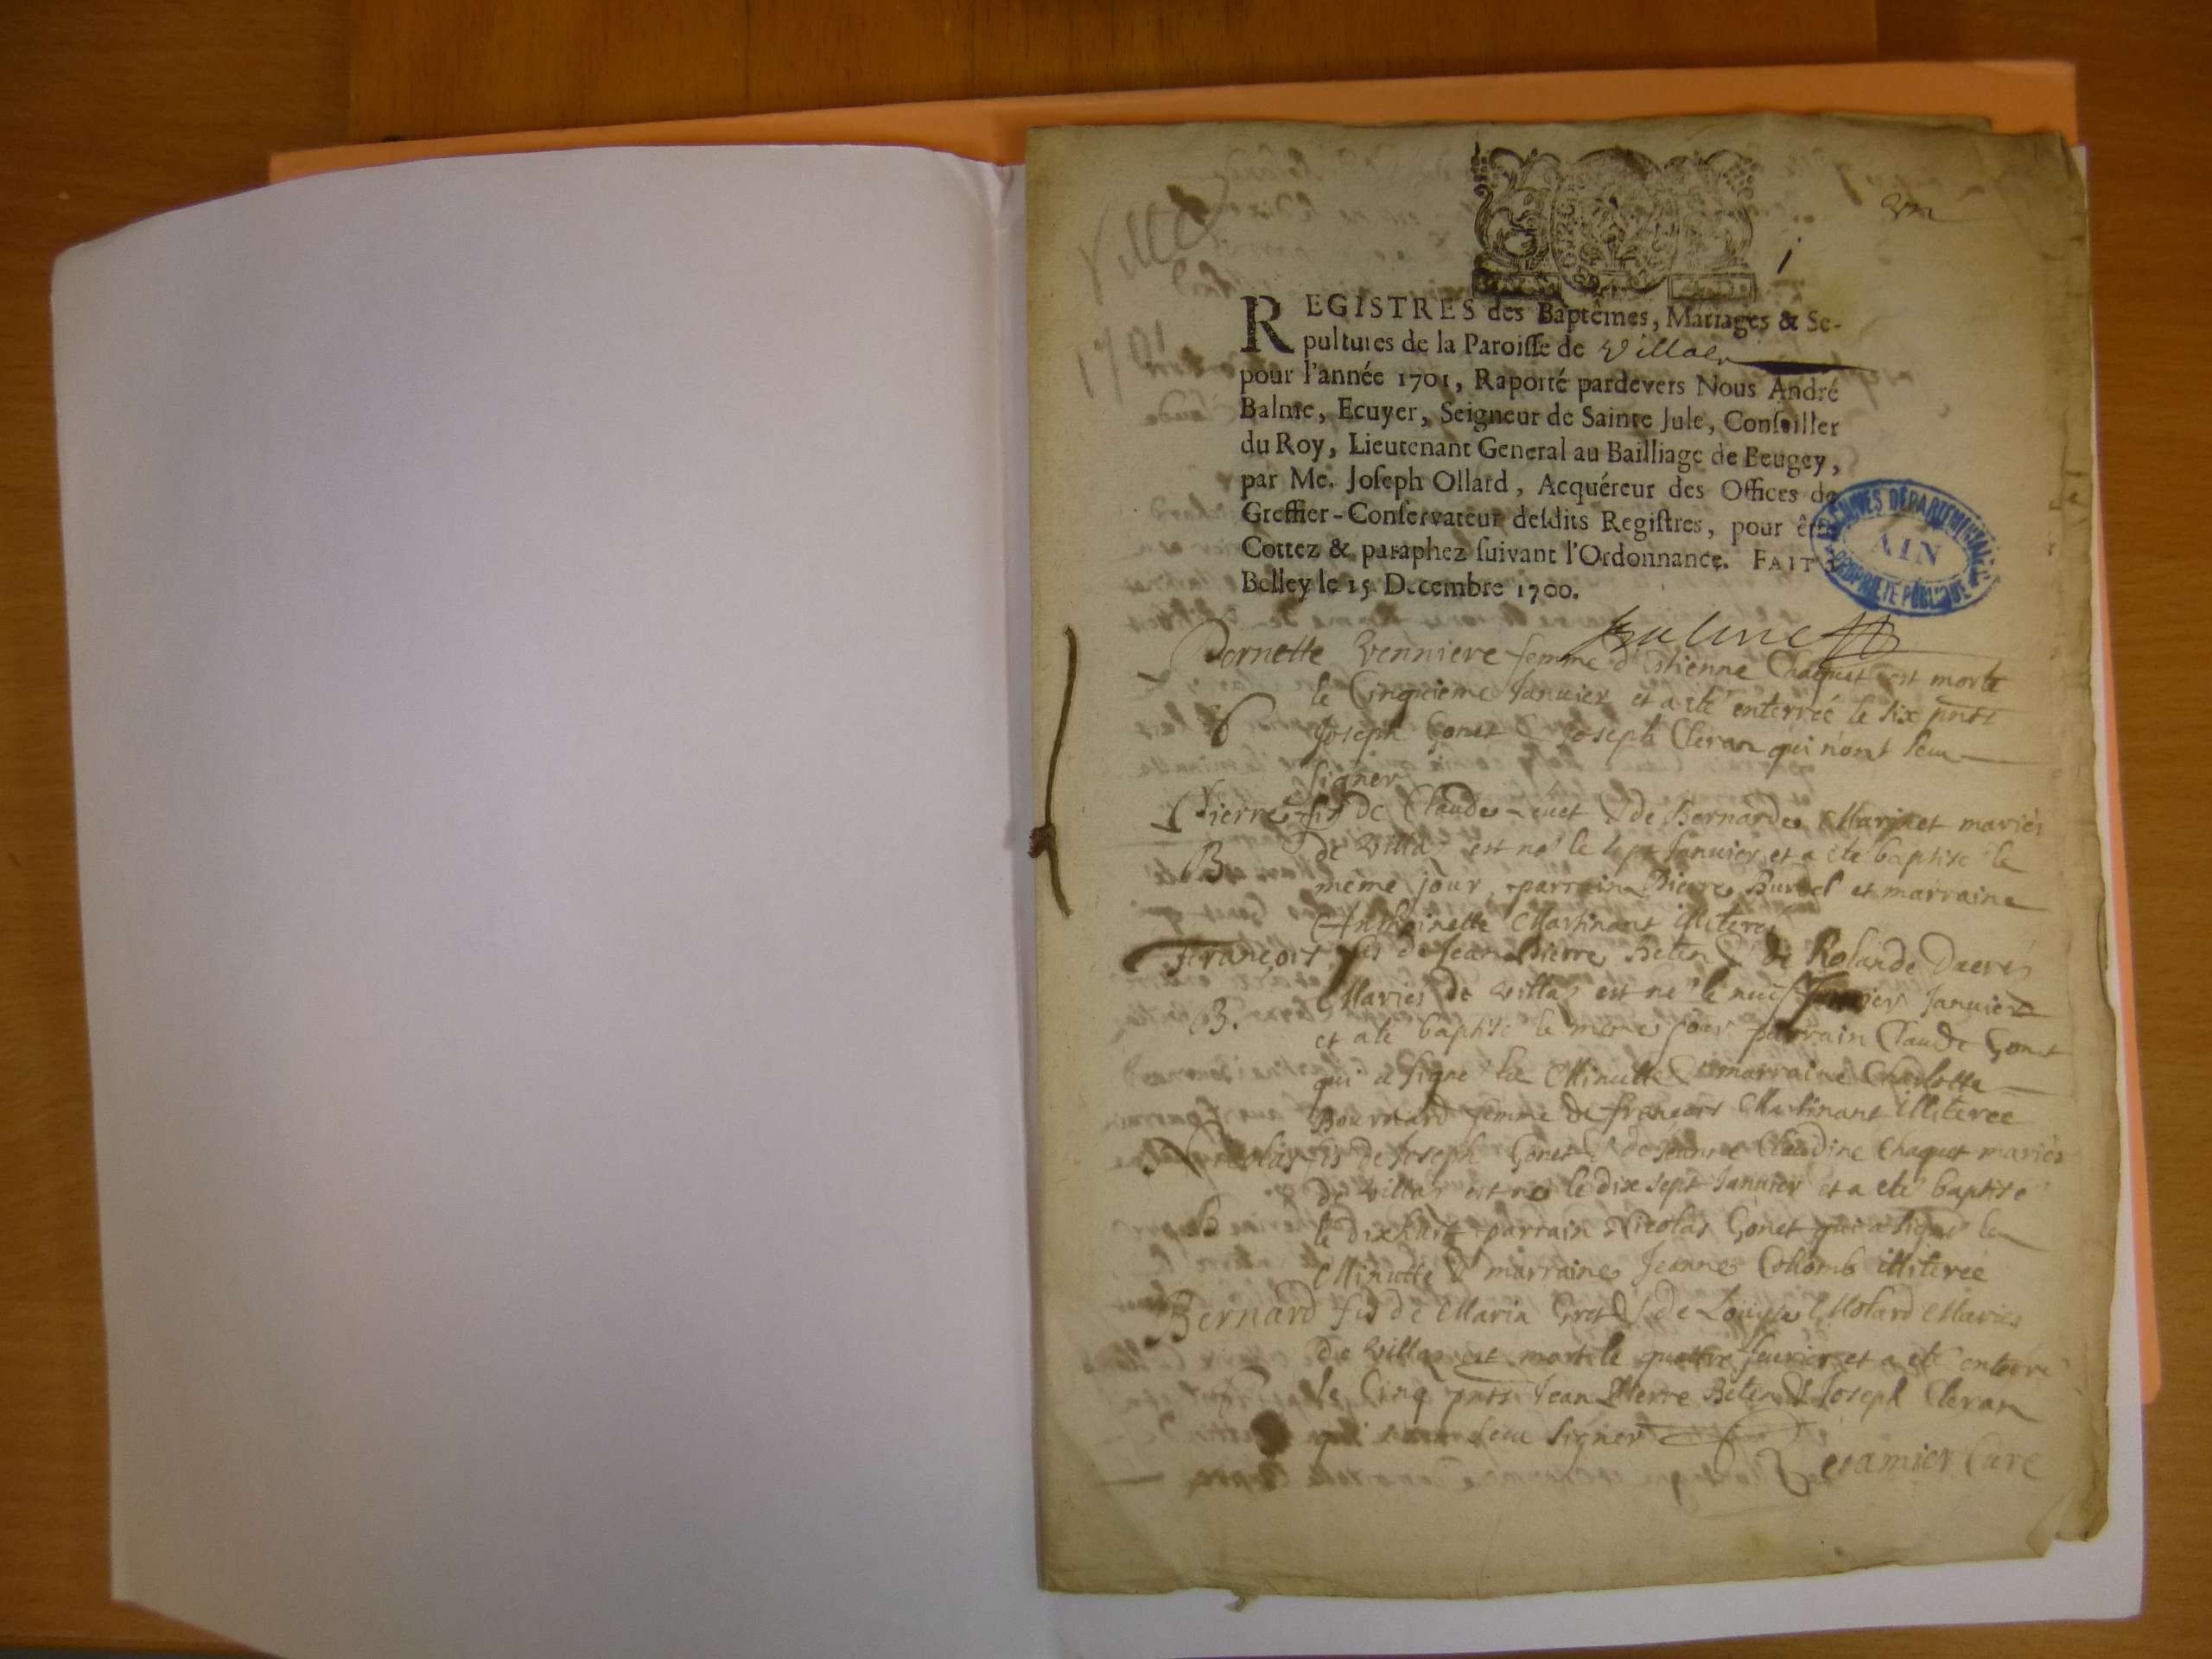 un
1
Villa
1701
REGISTRES des Baptêmes, Mariages & Se-
pultures de la Paroisse de Villaz
pour l'année 1701, Raporté pardevers Nous André
Balme, Ecuyer, Seigneur de Sainte Jule, Conseiller
du Roy, Lieutenant General au Bailliage de Beugey,
par Me. Joseph Ollard, Acquéreur des Offices de
Greffier-Conservateur desdits Registres, pour être
Cottez & paraphez suivant l'Ordonnance. FAIT à
Belley le 15 Decembre 1700.
ARCHIVES DEPARTEMENTALES
AIN
PROPRIETE PUBLIQUE
Balme
Pernette femme d'Estienne Chaquet est morte
le Cinquieme Januier et a ete enterrée le six pnts
Joseph Gonet & Joseph Cleran qui n'ont seu
signer
Pierre fis de Claude & de Bernarde Marinet mariés
B. de villaz est né le sept Januier et a ete baptisé le
meme jour, parrain Pierre Burdel et marraine
Anthoinette Martinant
François fis de Jean Pierre Beten & de Rolande
B. Mariés de villaz est né le neuf Januier
et a ete baptisé le meme jour parrain Claude Gonet
qui a signé la Minutte & marraine Charlotte
Bournard femme de françois Martinant illiterée
Nicolas fis de Joseph Gonet & de Jeanne Claudine Chaquet mariés
de villaz est né le dix sept Januier et a ete baptisé
le dixhuit parrain Nicolas Gonet qui a signé la
Minutte & marraine Jeanne Collomb illiterée
Bernard fis de Marin & de Louyse Molard Mariés
de villaz est mort le quattre feurier et a ete enterré
le Cinq pnts Jean Pierre Beten & Joseph Cleran
seu signer
Curé